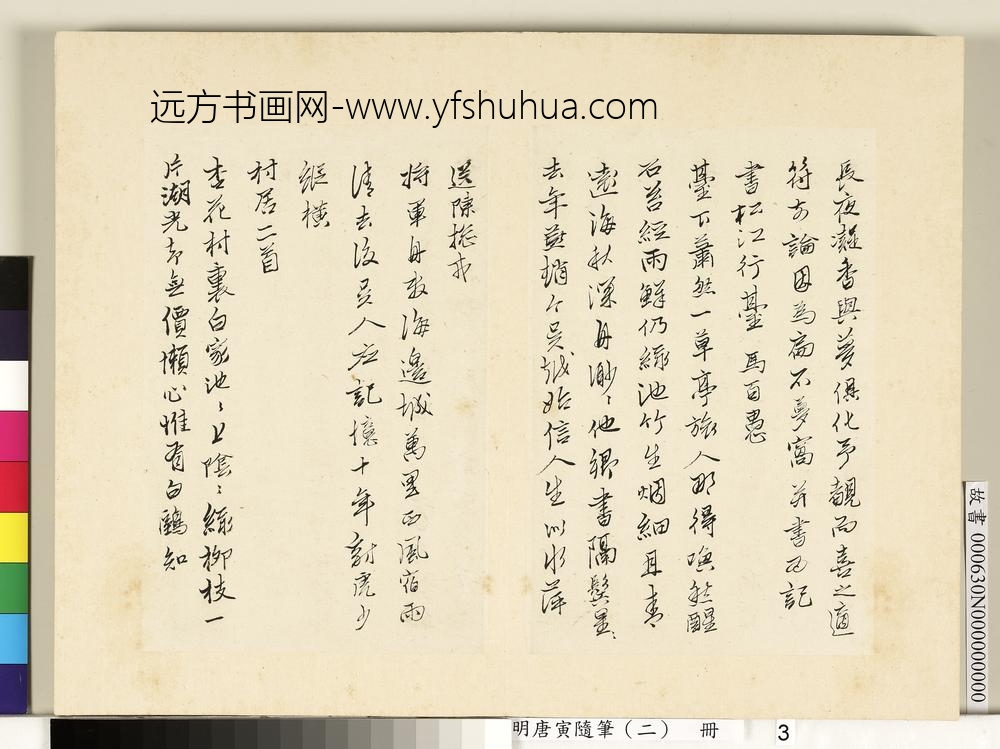 远方书画网-www.yfshuhua.com
長夜凝香與夢俱化予覩而喜之適
符前論因為扁不夢窩并書為記
書松江行臺 馬百愚
臺下蕭然一草亭旅人那得喚愁醒
石苔經雨鮮仍綠池竹生烟細且青青
遠海秋深舟渺渺他鄉書隔鬢星星
去年燕趙今吳越始信人生似水萍
送陳揔戎
將軍舟在海邊城萬里西風宿雨
清去後吳人應記憶十年射虎
縱橫
村居二首
杏花村裏白家池池上陰陰綠柳枝一
片湖光都無價懶心惟有白鷗知
故書 000630N000000000
明唐寅隨筆(二) 冊 3